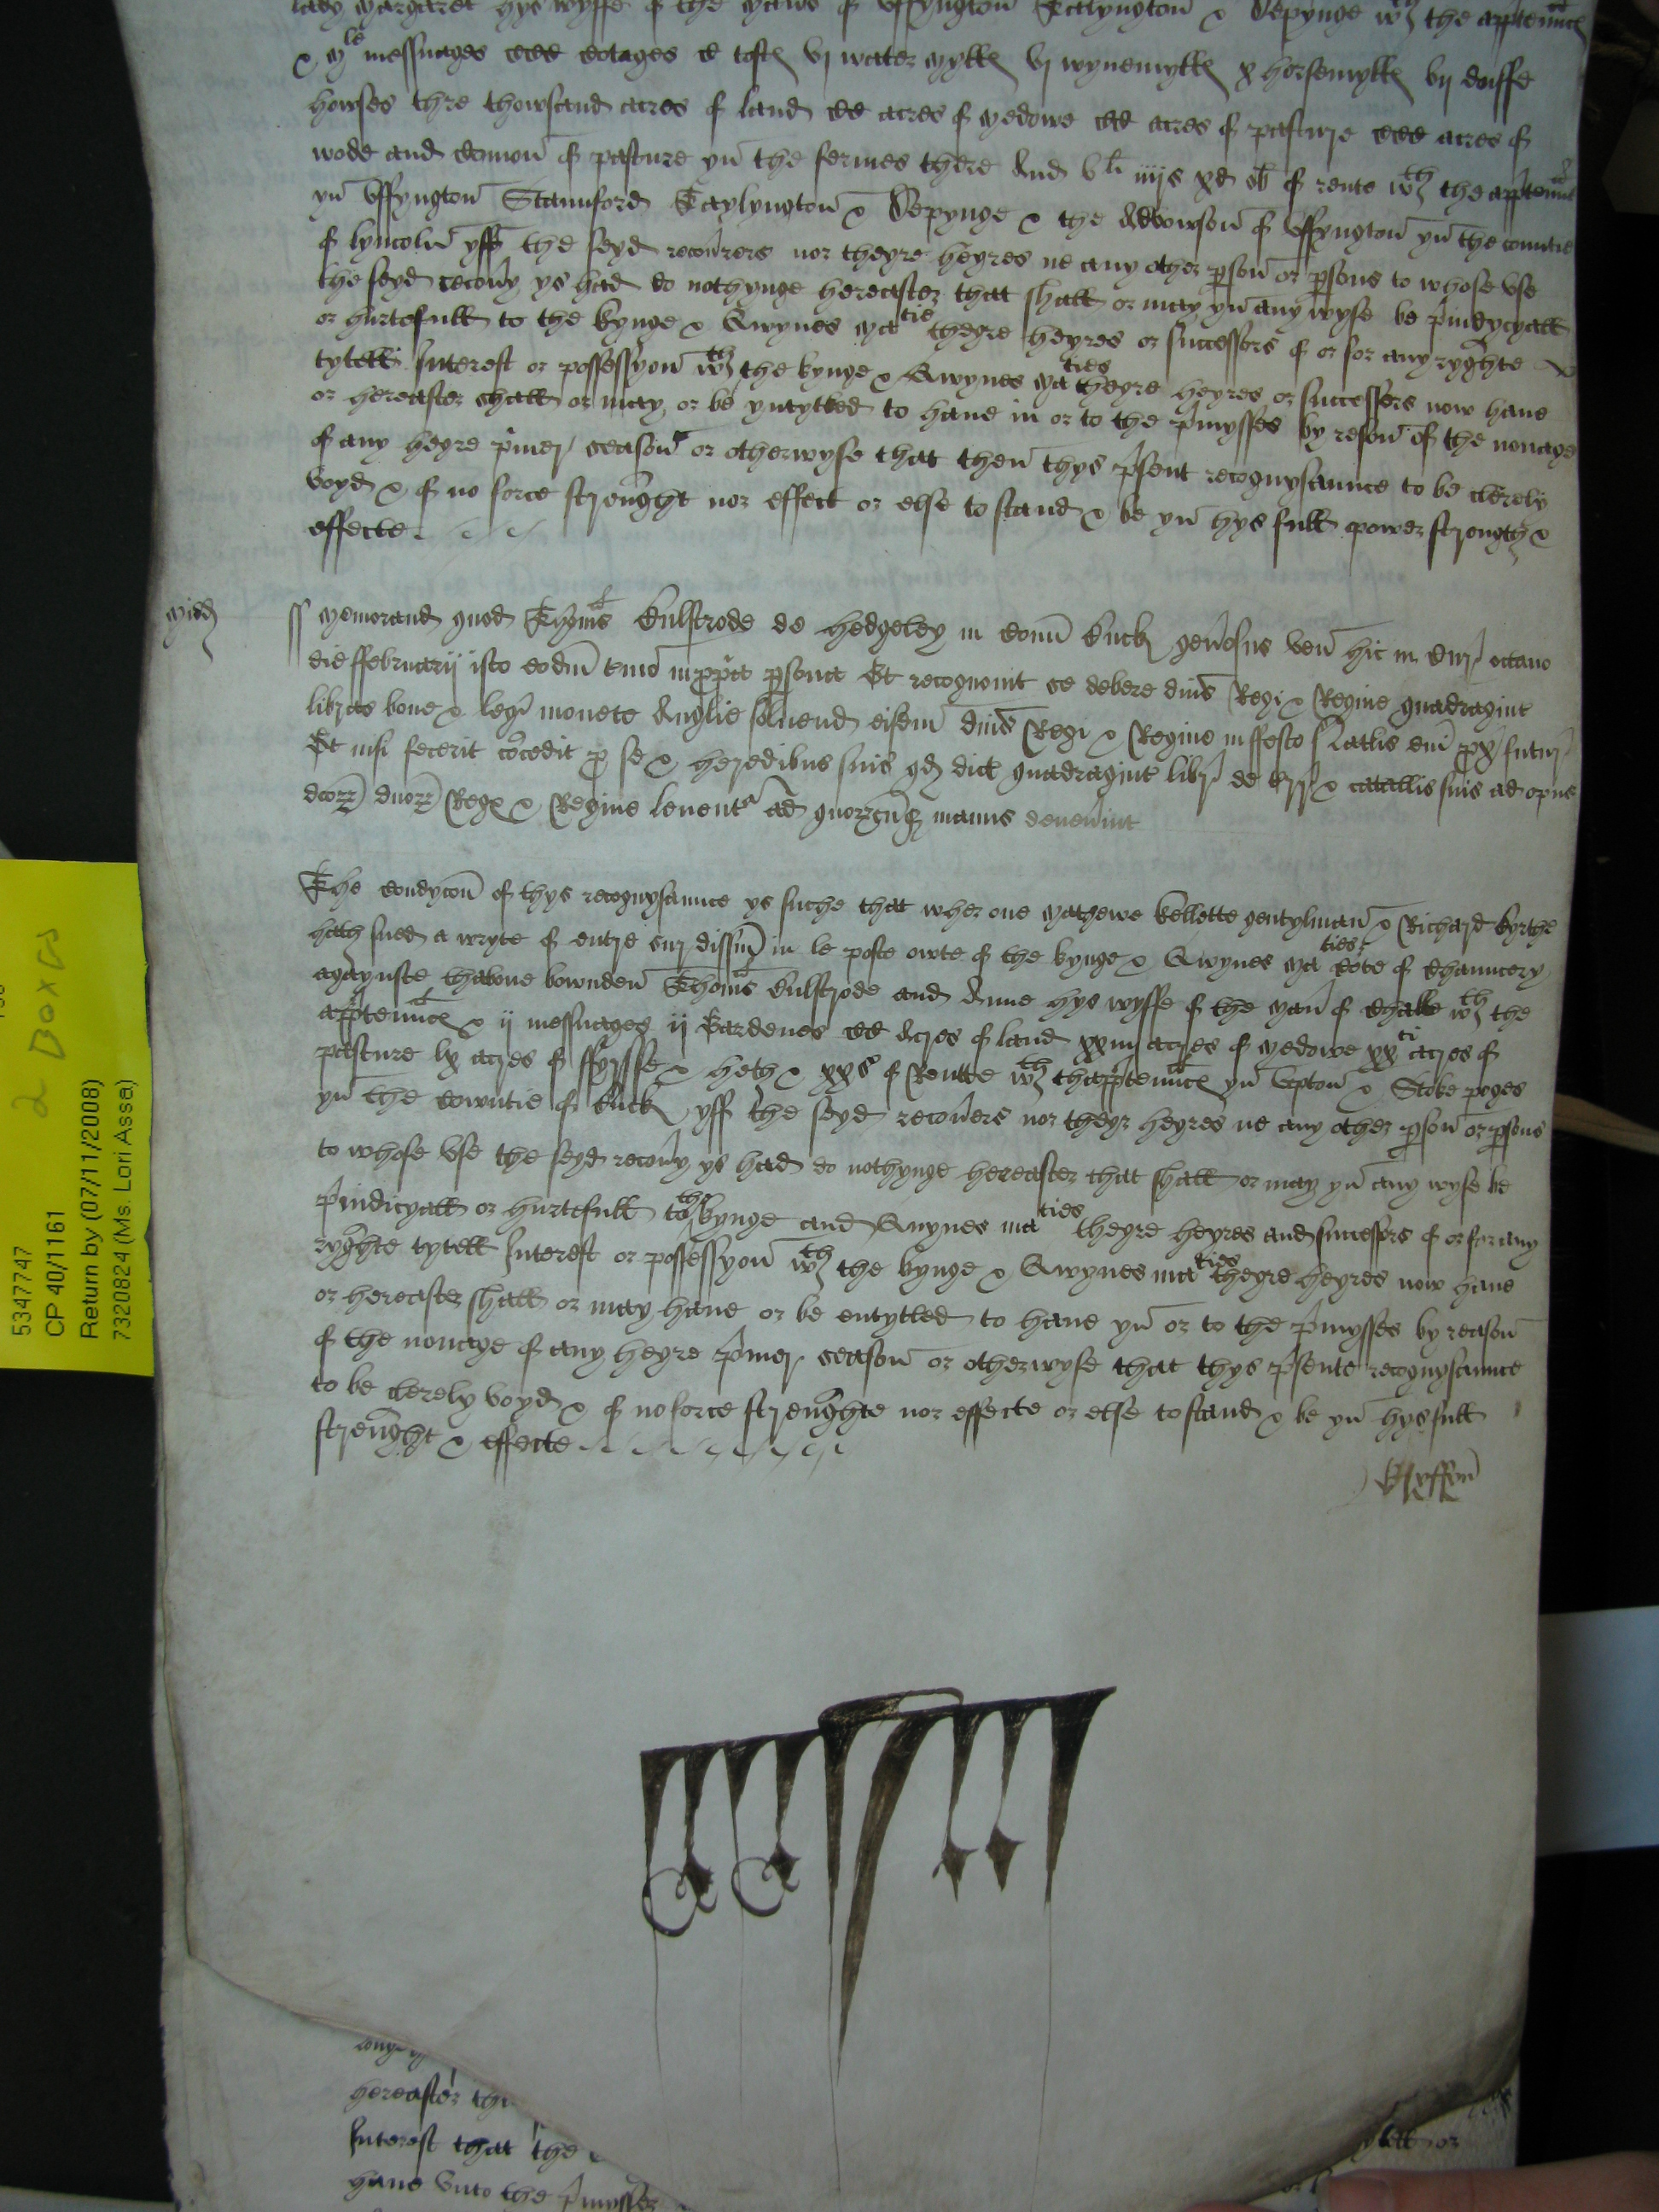 lady Margaret hys wyffe of the Manò of Uffyngton Talyngton & Depynge wth the apptennce
& mle messuages ccc cotages c toftes vj water mylles vj wynemylles x horsemylles vij doiffe
howses thre thowsand acres of land cc acres of medowe cc acres of pasture ccc acres of
wode and comon of pasture yn the fermes there And vli iiijs xd ob of rente wth the apptennce
yn Uffyngton Staunford Taylyngton & Depynge & the Advowson of Uffyngton yn the countie
of lyncoln yff the seyd recovrers nor theyre heyres ne any other pson or psons to whose use
the seyd recovy ys had do nothynge hereafter that shall or may yn any wyse be piudycyall
or hurtefull to the kynge & Qwynes matie theyre heyres or successors of or for any ryghte
tytell Interest or possessyon wth the kynge & Qwynes maties theyre heyres or successers now have
or hereafter shall or may or be yntytled to have in or to the pmysses by reson of the nonage
of any heyre pmer season or otherwyse that then thys psent recognysaunce to be clerely
voyd & of no force strenght nor effect or else to stand & be yn hys full power strongth &
effecte
Midd
ss Memorand quod Thomas Bulstrode de Hedgeley in Com Buck genosus ven hic in Cur octavo
die ffebruarij isto eodm tmio in ppria psona Et recognovit se debere dnis Regi & Regine quadragint
libras bone & legi monete Anglie solvend eisdm dnis Regi & Regine in ffesto Natlis dni px futur
Et nisi fecerit cocedit p se & heredibus suis qd dict quadragint libr de terr & catallis suis ad opus
dcor dnor Regis & Regine levent ad quorcuq manus devenint
The Condycon of thys recognysaunce ys suche that wher one Mathewe Kellette gentylman & Richard Byrche
hath sued a wryte of entre sur dissin in le poste owte of the kynge & Qwynes maties Cote of Chauncery
agaynste thabove bownden Thomas Bulstrode and Anne hys wyffe of the Man of Chalve wth the
apptennce & ij messuages ij Gardenes cc Acres of land xxiiij acres of medowe xxti acres of
pasture lx acres of ffyrsse & heth & xxs of Rentte wth thapptennce yn Upton & Stoke poges
yn the Cowntie of Buck yff the seyd recovers nor theyr heyres ne any other pson or psons
to whose use the seyd recovy ys had do nothynge hereafter that shall or may yn any wyse be
piudicyall or hurtefull to the kynge and Qwynes maties theyre heyres and successors of or for any
ryghte tytell Interest or possessyon wth the kynge & Qwynes maties theyre heyres now have
or hereafter shall or may have or be entytled to have yn or to the pmysses by reason
of the nonage of any heyre pmer season or otherwyse that thys psente recognysaunce
to be clerely voyd & of no force strenghte nor effecte or else to stand & be yn hys full
strenght & effecte
hereafter
Interest that the
have unto the pmysses
2 Boxes
5347747
CP 40/1161
Return by (07/11/2008)
7320824 (Ms. Lori Assa)